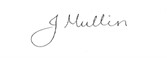 J Mullin